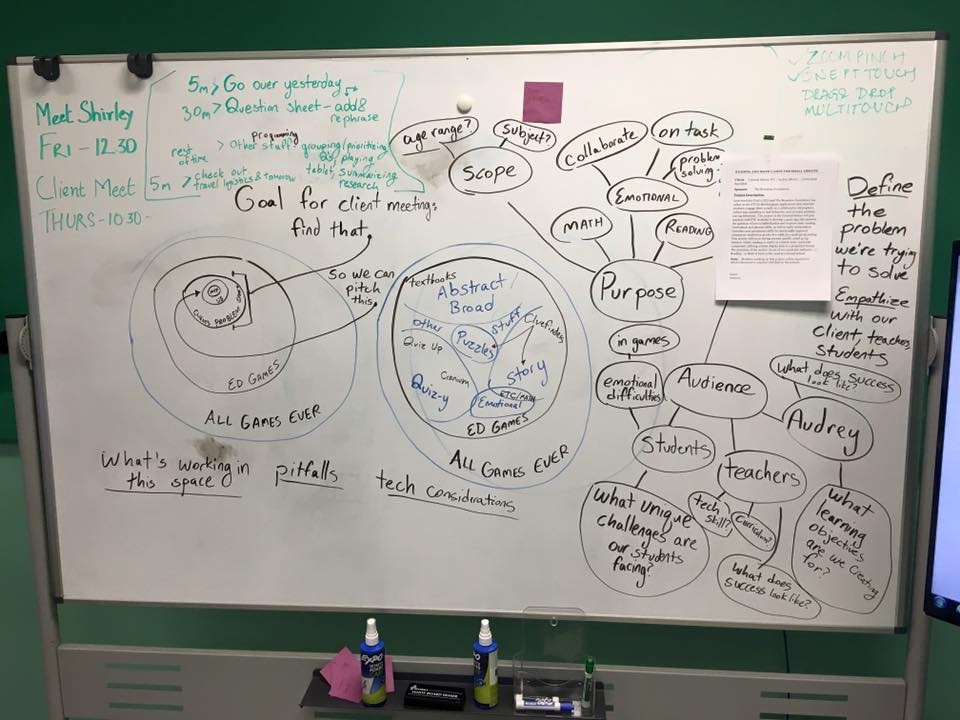 Meet Shirley
FRI - 12.30
Client Meet
THURS - 10:30 -
5m > Go over yesterday
30m > Question sheet - add &
rephrase
programming
rest
of time
> Other stuff?
grouping/prioritizing
Qs, playing
tablet, summarizing
research
5m > check out
travel logistics & tomorrow
Goal for client meeting:
find that,
So we can
pitch
this.
CLIENT'S PROBLEM
ED GAMES
ALL GAMES EVER
textbooks
Abstract
Broad
other
Quiz Up
Puzzles
Stuff
Cluefinders
Cranium
Story
Quiz-y
ETC/MATH
Emotional
ED GAMES
ALL GAMES EVER
What's working in
this space
pitfalls
tech considerations
age range?
subject?
Scope
Collaborate
on task
problem
solving
EMOTIONAL
MATH
READING
Purpose
in games
emotional
difficulties
Audience
Students
teachers
Audrey
What does success
look like?
What unique
challenges are
our students
facing?
tech
skill?
curriculum?
What does
success look like?
What
learning
objectives
are we creating
for?
Define
the
problem
we're trying
to solve
Empathize
with our
client, teachers,
students
✓ ZOOM PINCH
✓ ONE PT TOUCH
DRAG & DROP
MULTITOUCH
EXPO
EXPO